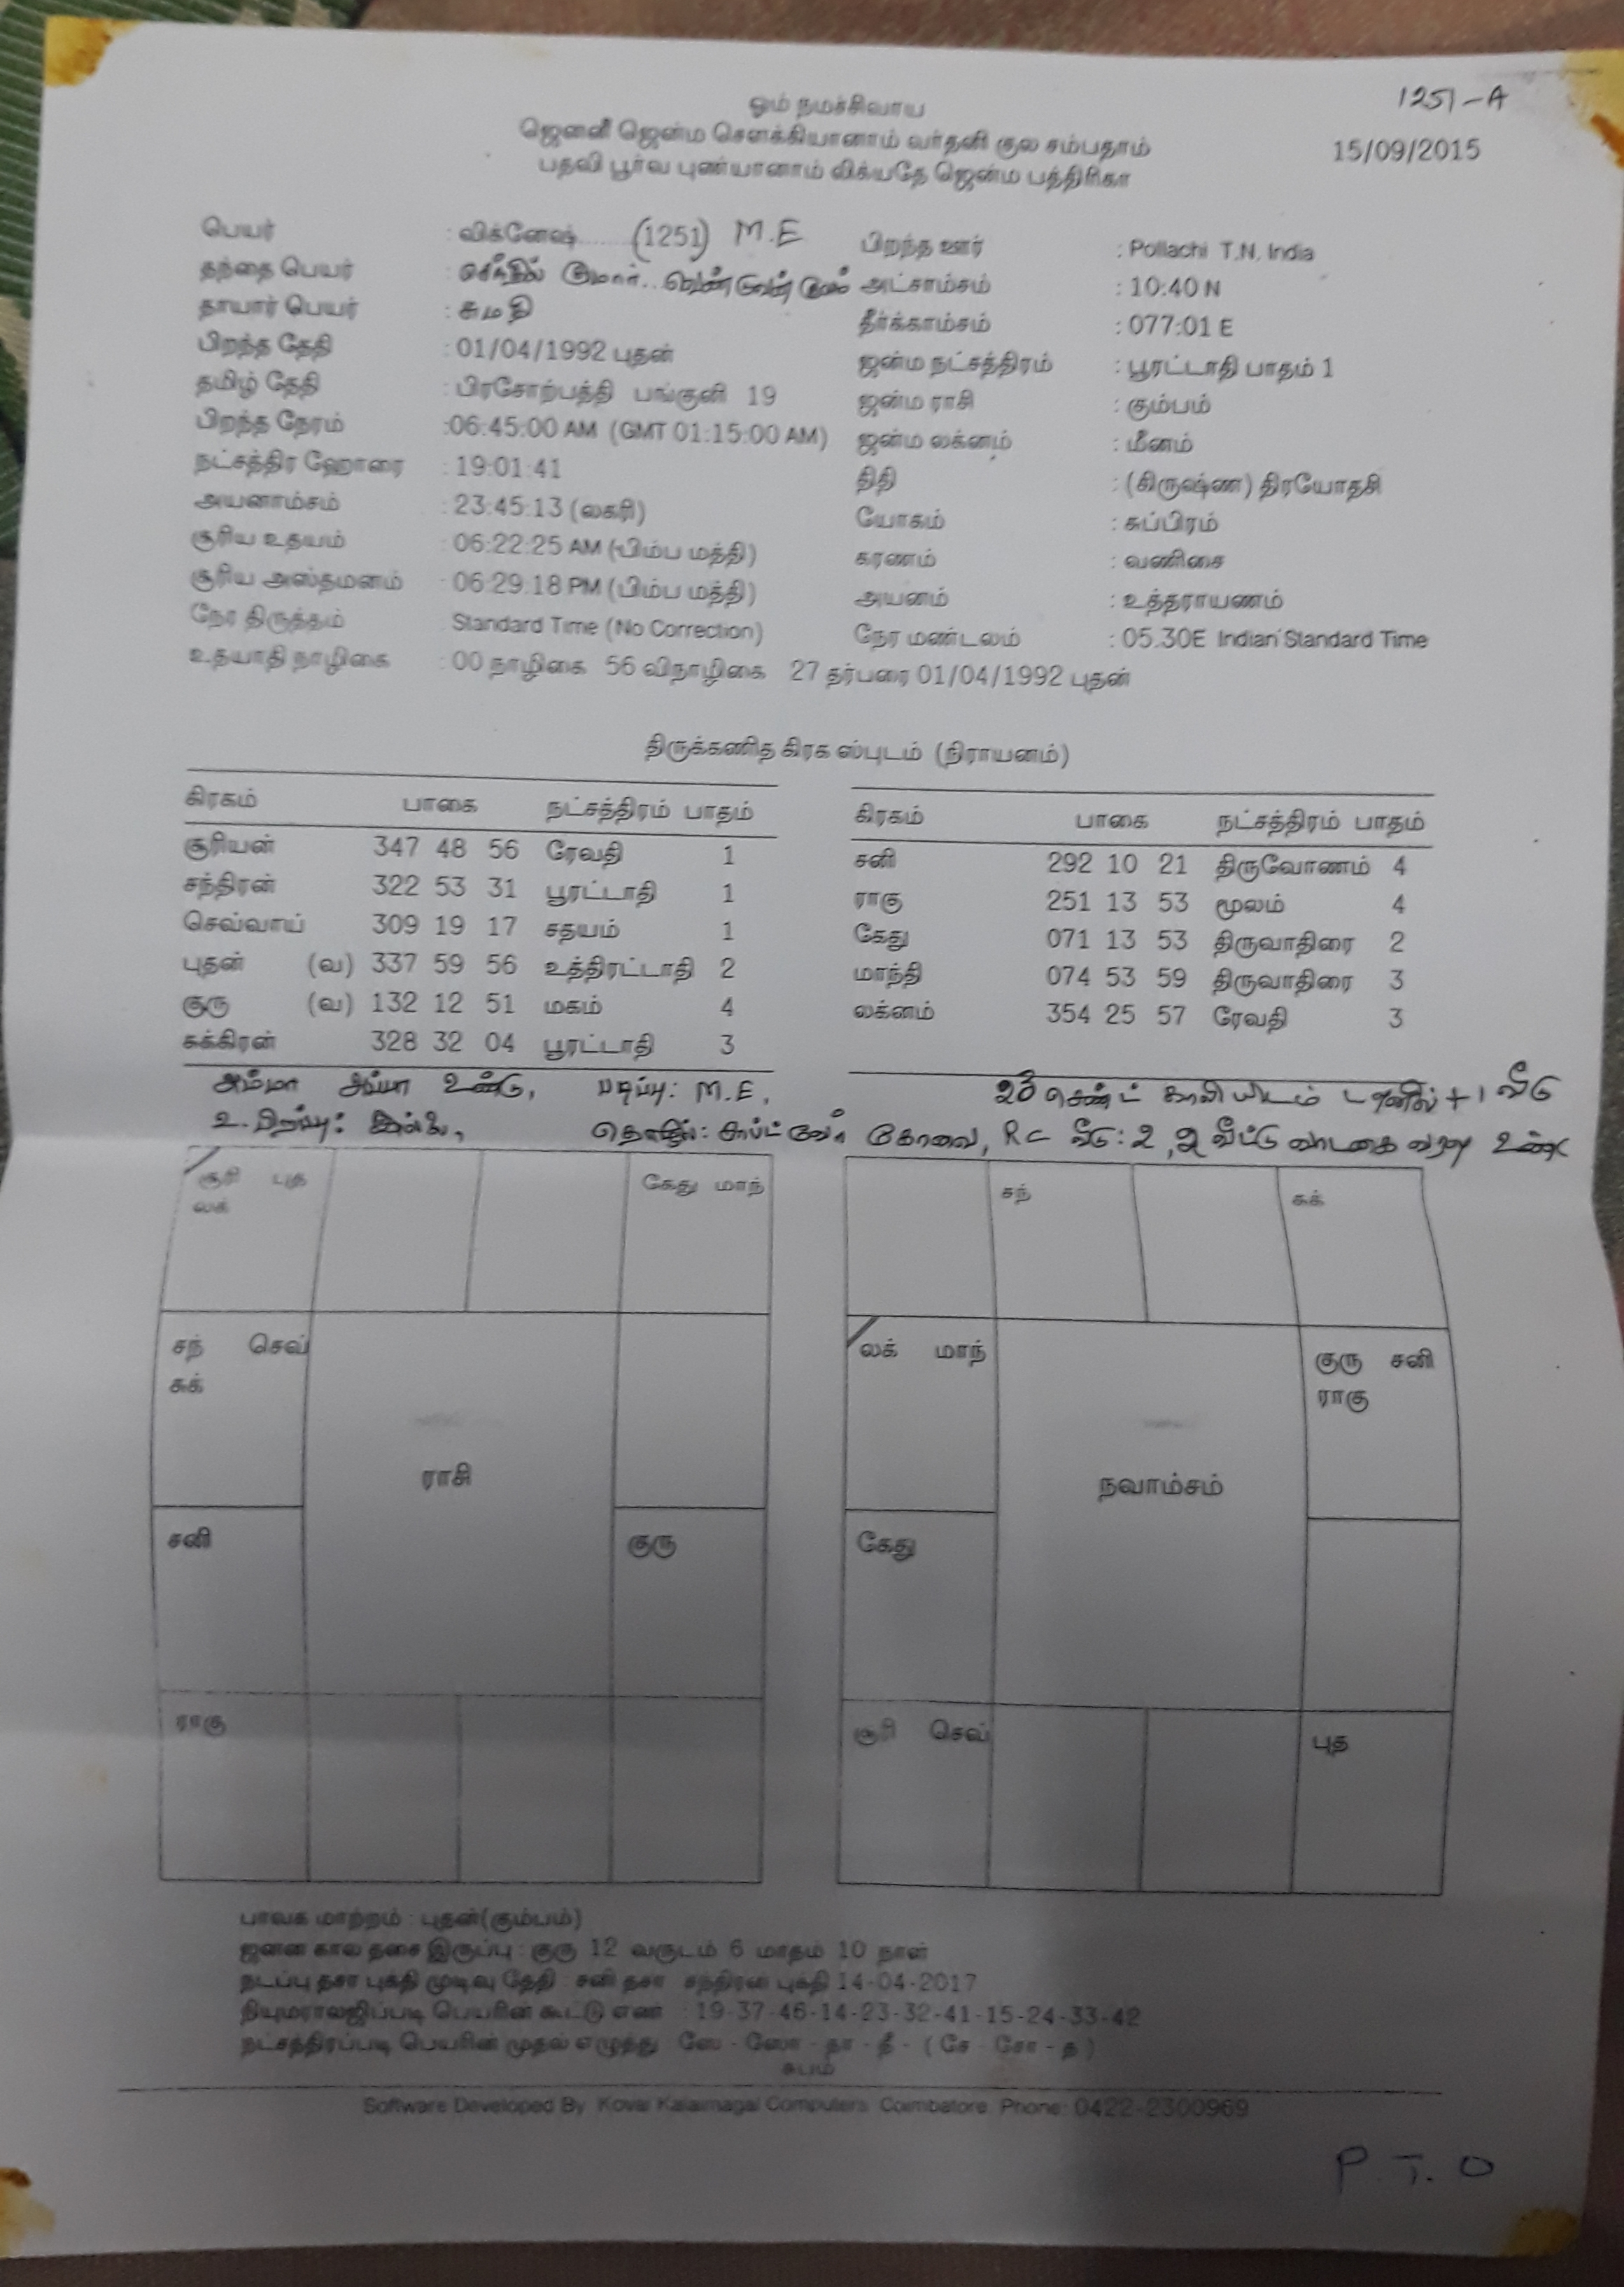 1251-A
ஓம் நமச்சிவாய
ஜெனனீ ஜென்ம சௌக்கியானாம் வர்தனி குல சம்பதாம்
15/09/2015
பதவி பூர்வ புண்யானாம் லிக்யதே ஜென்ம பத்திரிகா
பெயர் : விக்னேஷ் ...... (1251) M.E
தந்தை பெயர் : செந்தில் குமார்..
தாயார் பெயர் : சுமதி
பிறந்த தேதி : 01/04/1992 புதன்
தமிழ் தேதி : பிரசோற்பத்தி பங்குனி 19
பிறந்த நேரம் :06:45:00 AM (GMT 01:15:00 AM)
நட்சத்திர ஹோரை : 19:01:41
அயனாம்சம் : 23:45:13 (லகரி)
சூரிய உதயம் : 06:22:25 AM (பிம்ப மத்தி)
சூரிய அஸ்தமனம் : 06:29:18 PM (பிம்ப மத்தி)
நேர திருத்தம் : Standard Time (No Correction)
உதயாதி நாழிகை : 00 நாழிகை 56 விநாழிகை 27 தர்பரை 01/04/1992 புதன்
பிறந்த ஊர் : Pollachi T.N. India
அட்சாம்சம் : 10:40 N
தீர்க்காம்சம் : 077:01 E
ஜன்ம நட்சத்திரம் : பூரட்டாதி பாதம் 1
ஜன்ம ராசி : கும்பம்
ஜன்ம லக்னம் : மீனம்
திதி : (கிருஷ்ண) திரயோதசி
யோகம் : சுப்பிரம்
கரணம் : வணிசை
அயனம் : உத்தராயணம்
நேர மண்டலம் : 05.30E Indian Standard Time
திருக்கணித கிரக ஸ்புடம் (நிராயனம்)
கிரகம் பாகை நட்சத்திரம் பாதம்
சூரியன் 347 48 56 ரேவதி 1
சந்திரன் 322 53 31 பூரட்டாதி 1
செவ்வாய் 309 19 17 சதயம் 1
புதன் (வ) 337 59 56 உத்திரட்டாதி 2
குரு (வ) 132 12 51 மகம் 4
சுக்கிரன் 328 32 04 பூரட்டாதி 3
கிரகம் பாகை நட்சத்திரம் பாதம்
சனி 292 10 21 திருவோணம் 4
ராகு 251 13 53 மூலம் 4
கேது 071 13 53 திருவாதிரை 2
மாந்தி 074 53 59 திருவாதிரை 3
லக்னம் 354 25 57 ரேவதி 3
அம்மா அப்பா உண்டு, படிப்பு: M.E, சென்ட் காலியிடம் டவுனில் + 1 வீடு
உ.பிறப்பு: இல்லை, தொழில்: கோவை, RC வீடு: 2, 2 வீட்டு வாடகை வரவு உண்டு
சூரி புத
லக்
கேது மாந்
சந் செவ்
சுக்
ராசி
சனி
குரு
ராகு
சந்
சுக்
லக் மாந்
குரு சனி
ராகு
நவாம்சம்
கேது
சூரி செவ்
புத
பாவக மாற்றம் : புதன்(கும்பம்)
ஜனன கால தசை இருப்பு : குரு 12 வருடம் 6 மாதம் 10 நாள்
நடப்பு தசா புக்தி முடிவு தேதி : சனி தசா சந்திரன் புக்தி 14-04-2017
நியுமராலஜிப்படி பெயரின் கூட்டு எண் : 19-37-46-14-23-32-41-15-24-33-42
நட்சத்திரப்படி பெயரின் முதல் எழுத்து ஸே - ஸோ - தா - தீ - ( சே - சோ - த )
சுபம்
Software Developed By Kovai Kalaimagal Computers Coimbatore. Phone: 0422-2300969
P.T.O